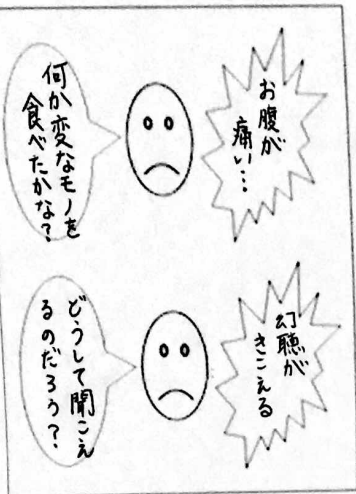 お腹が
痛い…
何か変なモノを
食べたかな?
幻聴が
きこえる
どうして聞こえ
るのだろう?